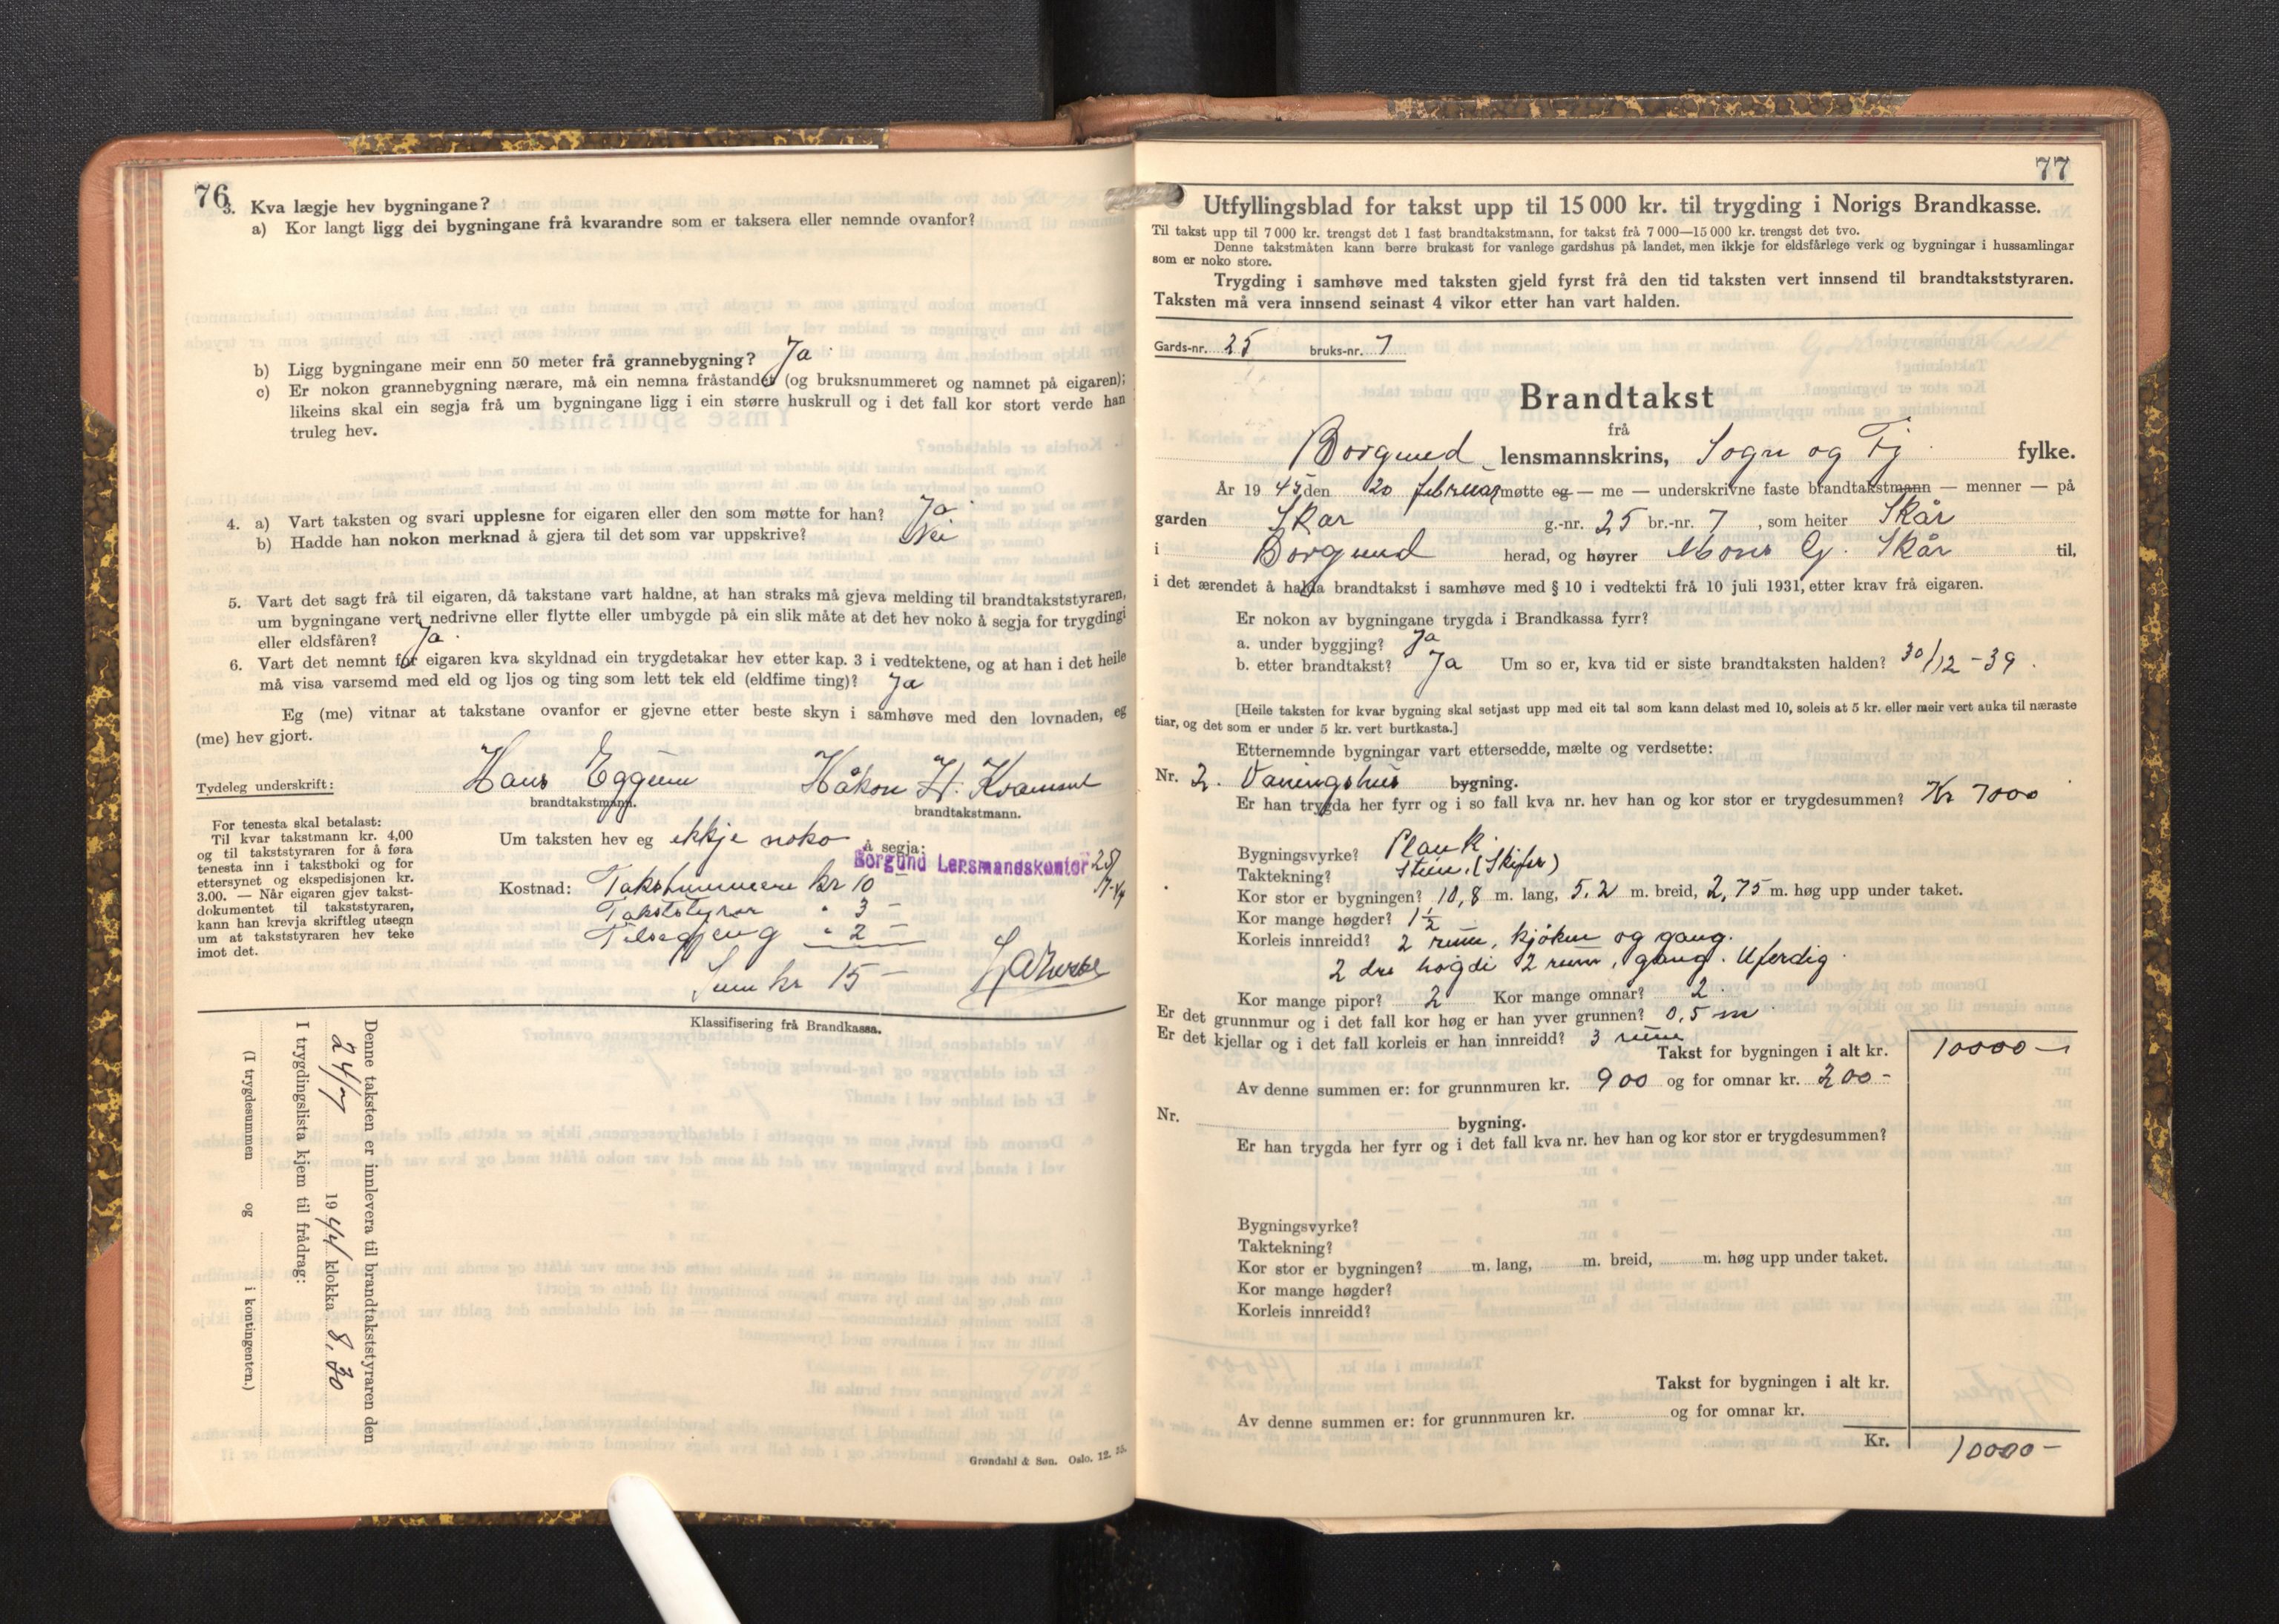 76
3. Kva lægje hev bygningane?
a) Kor langt ligg dei bygningane frå kvarandre som er taksera eller nemnde ovanfor?
b) Ligg bygningane meir enn 50 meter frå grannebygning? Ja
c) Er nokon grannebygning nærare, må ein nemna fråstandet (og bruksnummeret og namnet på eigaren);
likeins skal ein segja frå um bygningane ligg i ein større huskrull og i det fall kor stort verde han
truleg hev.
4. a) Vart taksten og svari upplesne for eigaren eller den som møtte for han? Ja
b) Hadde han nokon merknad å gjera til det som var uppskrive? Nei
5. Vart det sagt frå til eigaren, då takstane vart haldne, at han straks må gjeva melding til brandtakststyraren,
um bygningane vert nedrivne eller flytte eller umbygde på ein slik måte at det hev noko å segja for trygdingi
eller eldsfåren? Ja
6. Vart det nemnt for eigaren kva skyldnad ein trygdetakar hev etter kap. 3 i vedtektene, og at han i det heile
må visa varsemd med eld og ljos og ting som lett tek eld (eldfime ting)? Ja
Eg (me) vitnar at takstane ovanfor er gjevne etter beste skyn i samhøve med den lovnaden, eg
(me) hev gjort.
Tydeleg underskrift: Hans Eggum Håkon H. Kvamme
brandtakstmann. brandtakstmann.
For tenesta skal betalast:
Til kvar takstmann kr. 4,00
og til takststyraren for å føra
tenesta inn i takstboki og for
ettersynet og ekspedisjonen kr.
3.00. — Når eigaren gjev takst-
dokumentet til takststyraren,
kann han krevja skriftleg utsegn
um at takststyraren hev teke
imot det.
Um taksten hev eg ikkje noko å segja:
Borgund Lensmandskontor
Kostnad: Takstmennene kr 10 —
Takststyrar " 3 —
" 2 —
Sum kr 15 —
Klassifisering frå Brandkassa.
Denne taksten er innlevera til brandtakststyraren den
24/7 1944 klokka 8,30
I trygdingslista kjem til frådrag:
(I trygdesummen og i kontingenten.)
Grøndahl & Søn. Oslo. 12. 35.
77
Utfyllingsblad for takst upp til 15 000 kr. til trygding i Norigs Brandkasse.
Til takst upp til 7 000 kr. trengst det 1 fast brandtakstmann, for takst frå 7 000—15 000 kr. trengst det tvo.
Denne takstmåten kann berre brukast for vanlege gardshus på landet, men ikkje for eldsfårlege verk og bygningar i hussamlingar
som er noko store.
Trygding i samhøve med taksten gjeld fyrst frå den tid taksten vert innsend til brandtakststyraren.
Taksten må vera innsend seinast 4 vikor etter han vart halden.
Gards-nr. 25 bruks-nr. 7
Brandtakst
frå
Borgund lensmannskrins, Sogn og Fj fylke.
År 1945 den 20 februar møtte eg — me — underskrivne faste brandtakstmann — menner — på
garden Skår g.-nr. 25 br.-nr. 7, som heiter Skår
i Borgund herad, og høyrer Mons G. Skår til,
i det ærendet å halda brandtakst i samhøve med § 10 i vedtekti frå 10 juli 1931, etter krav frå eigaren.
Er nokon av bygningane trygda i Brandkassa fyrr?
a. under byggjing? Ja
b. etter brandtakst? Ja Um so er, kva tid er siste brandtaksten halden? 30/12 - 39.
[Heile taksten for kvar bygning skal setjast upp med eit tal som kann delast med 10, soleis at 5 kr. eller meir vert auka til næraste
tiar, og det som er under 5 kr. vert burtkasta.]
Etternemnde bygningar vart ettersedde, mælte og verdsette:
Nr. 2. Vaningshus bygning.
Er han trygda her fyrr og i so fall kva nr. hev han og kor stor er trygdesummen? Kr 7000
Bygningsvyrke? Plank
Taktekning? Stein. (Skifer)
Kor stor er bygningen? 10,8 m. lang, 5,2 m. breid, 2,75 m. høg upp under taket.
Kor mange høgder? 1 1/2
Korleis innreidd? 2 rum, kjøken og gang.
2 dre høgdi 2 rum, gang. Uferdig
Kor mange pipor? 2 Kor mange omnar? 2
Er det grunnmur og i det fall kor høg er han yver grunnen? 0,5 m
Er det kjellar og i det fall korleis er han innreidd? 3 rum
Takst for bygningen i alt kr. 10000 —
Av denne summen er: for grunnmuren kr. 900 og for omnar kr. 200 -
Nr. bygning.
Er han trygda her fyrr og i det fall kva nr. hev han og kor stor er trygdesummen?
Bygningsvyrke?
Taktekning?
Kor stor er bygningen? m. lang, m. breid, m. høg upp under taket.
Kor mange høgder?
Korleis innreidd?
Takst for bygningen i alt kr.
Av denne summen er: for grunnmuren kr. og for omnar kr.
Kr. 10000 -